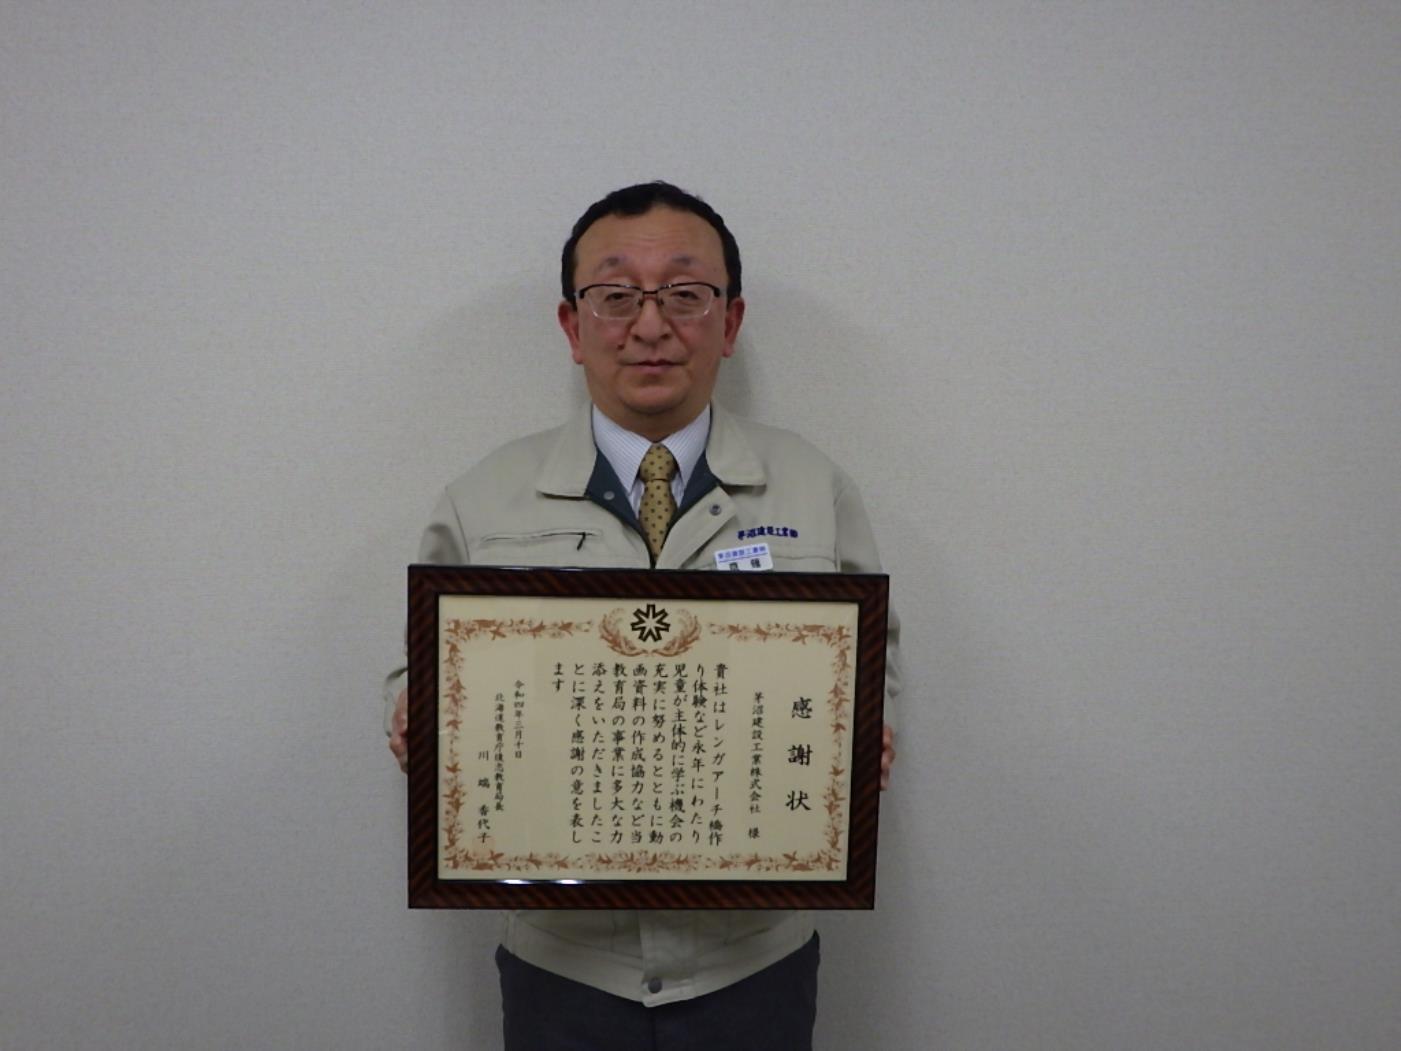 茅沼建設工業㈱
茅沼建設工業㈱
感謝状
茅沼建設工業株式会社 様
貴社はレンガアーチ橋作
り体験など永年にわたり
児童が主体的に学ぶ機会の
充実に努めるとともに動
画資料の作成協力など当
教育局の事業に多大な力
添えをいただきましたこ
とに深く感謝の意を表し
ます
令和四年三月十日
北海道教育庁後志教育局長
川端香代子